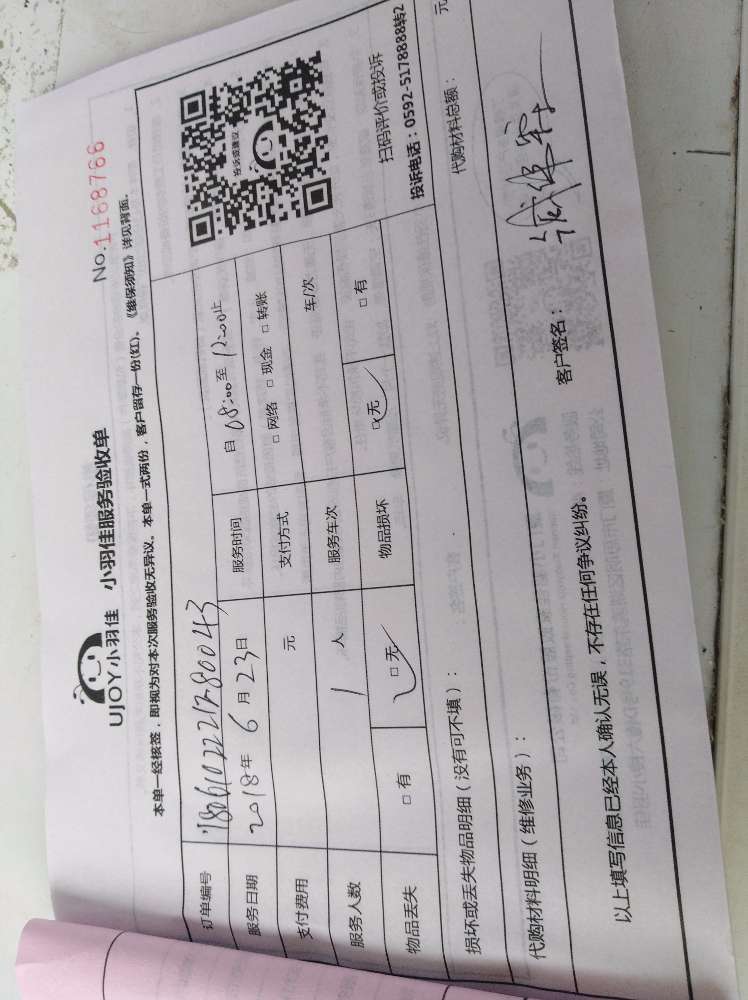 UJOY小羽佳 小羽佳服务验收单
No.1168766
本单一经核签，即视为对本次服务验收无异议。本单一式两份，客户留存一份(红)、《维保须知》详见背面。
订单编号
服务日期 2018年 6 月 23 日 服务时间 自 08:00 至 12:00 止
支付费用 元 支付方式 □ 网络 □ 现金 □ 转账
服务人数 1 人 服务车次 车/次
物品丢失 □ 有 □ 无 物品损坏 □ 无 □ 有
投诉或建议
扫码评价或投诉
投诉电话：0592-5178888转2
损坏或丢失物品明细（没有可不填）：
代购材料明细（维修业务）： 代购材料总额： 元
以上填写信息已经本人确认无误，不存在任何争议纠纷。
客户签名：